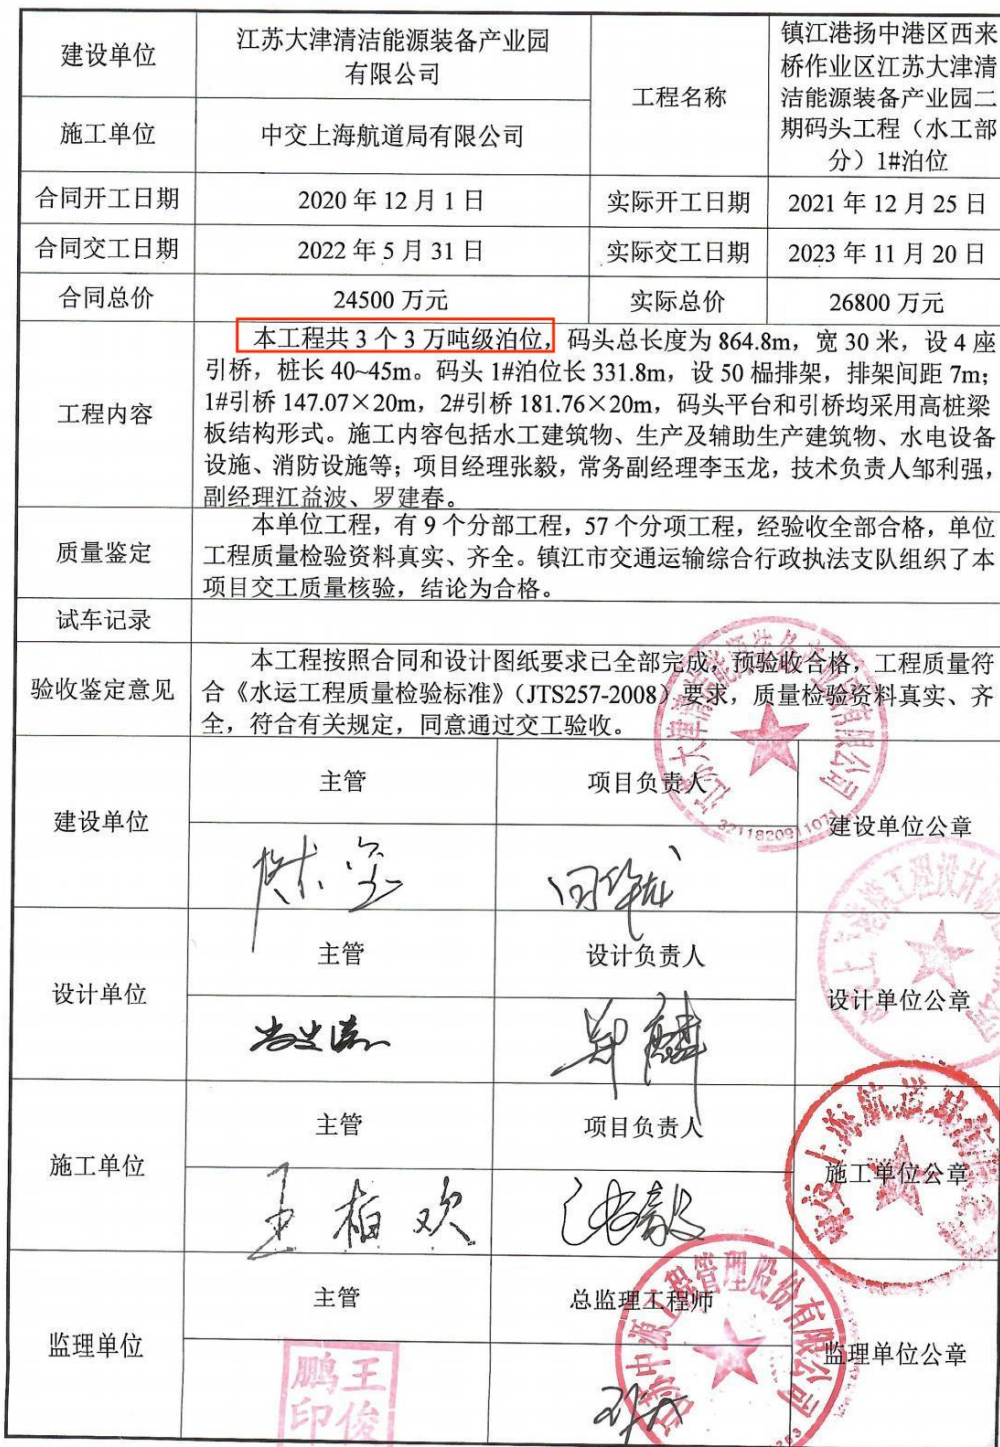 建设单位
江苏大津清洁能源装备产业园
有限公司
工程名称
镇江港扬中港区西来
桥作业区江苏大津清
洁能源装备产业园二
期码头工程（水工部
分）1#泊位
施工单位
中交上海航道局有限公司
合同开工日期
2020 年 12 月 1 日
实际开工日期
2021 年 12 月 25 日
合同交工日期
2022 年 5 月 31 日
实际交工日期
2023 年 11 月 20 日
合同总价
24500 万元
实际总价
26800 万元
工程内容
本工程共 3 个 3 万吨级泊位，码头总长度为 864.8m，宽 30 米，设 4 座
引桥，桩长 40~45m。码头 1#泊位长 331.8m，设 50 榀排架，排架间距 7m；
1#引桥 147.07×20m，2#引桥 181.76×20m，码头平台和引桥均采用高桩梁
板结构形式。施工内容包括水工建筑物、生产及辅助生产建筑物、水电设备
设施、消防设施等；项目经理张毅，常务副经理李玉龙，技术负责人邹利强，
副经理江益波、罗建春。
质量鉴定
本单位工程，有 9 个分部工程，57 个分项工程，经验收全部合格，单位
工程质量检验资料真实、齐全。镇江市交通运输综合行政执法支队组织了本
项目交工质量核验，结论为合格。
试车记录
验收鉴定意见
本工程按照合同和设计图纸要求已全部完成，预验收合格，工程质量符
合《水运工程质量检验标准》（JTS257-2008）要求，质量检验资料真实、齐
全，符合有关规定，同意通过交工验收。
江苏大津清洁能源装备产业园有限公司
建设单位
主管
项目负责人
建设单位公章
设计单位
主管
设计负责人
设计单位公章
郑麟
施工单位
主管
项目负责人
施工单位公章
王柏欢
张毅
监理单位
主管
总监理工程师
监理单位公章
中源工程管理股份有限公司
王俊
鹏印